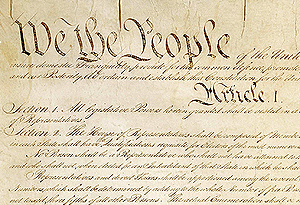 We the People of the
insure domestic Tranquility, provide for the common defence, promote
and our Posterity, do ordain and establish this Constitution for the
Article. I.
Section. 1. All legislative Powers herein granted shall be vested in a
of Representatives.
Section. 2. The House of Representatives shall be composed of Members
in each State shall have Qualifications requisite for Electors of the most numerous
No Person shall be a Representative who shall not have attained
and who shall not, when elected, be an Inhabitant of that State in which he shall
Representatives and direct Taxes shall be apportioned among the several
Numbers, which shall be determined by adding to the whole Number of free
not taxed, three fifths of all other Persons. The actual Enumeration shall